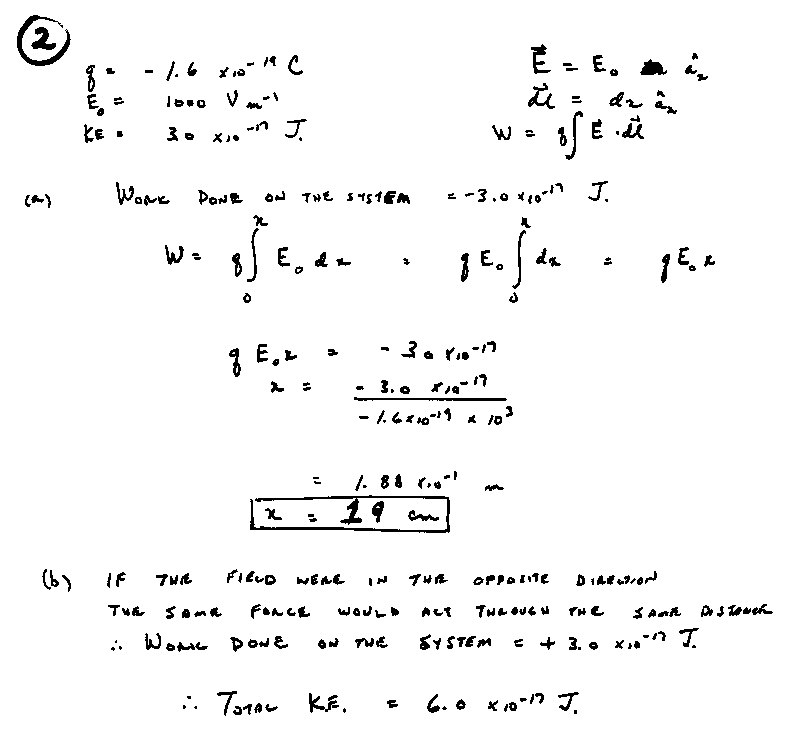 2
q = - 1.6 x10⁻¹⁹ C
E₀ = 1000 V m⁻¹
KE = 3.0 x10⁻¹⁷ J.
E⃗ = E₀ âₓ
dl⃗ = dx âₓ
W = q∫ E⃗ · dl⃗
(a) WORK DONE ON THE SYSTEM = -3.0 x10⁻¹⁷ J.
W = q∫₀ˣ E₀ dx = qE₀ ∫₀ˣ dx = qE₀x
qE₀x = - 3.0 x10⁻¹⁷
x = - 3.0 x10⁻¹⁷
- 1.6 x10⁻¹⁹ x 10³
= 1.88 x10⁻¹ m
x = 19 cm
(b) IF THE FIELD WERE IN THE OPPOSITE DIRECTION
THE SAME FORCE WOULD ACT THROUGH THE SAME DISTANCE
∴ WORK DONE ON THE SYSTEM = + 3.0 x10⁻¹⁷ J.
∴ TOTAL K.E. = 6.0 x10⁻¹⁷ J.